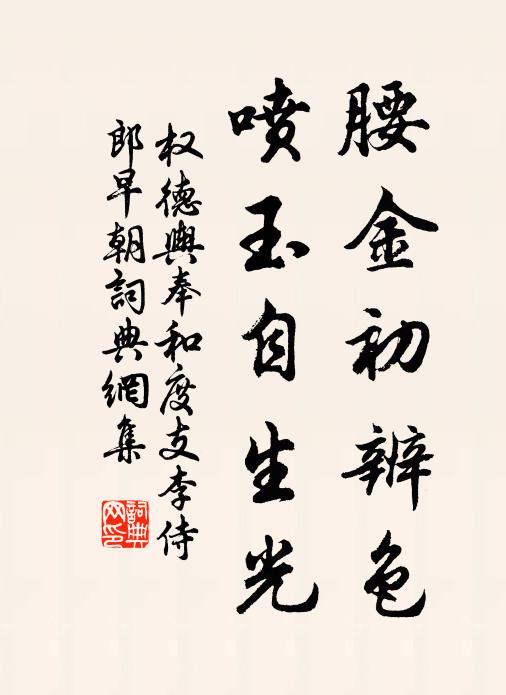 腰金初辨色
喷玉自生光
权德舆奉和度支李侍
郎早朝詞典網集
詞典
网印